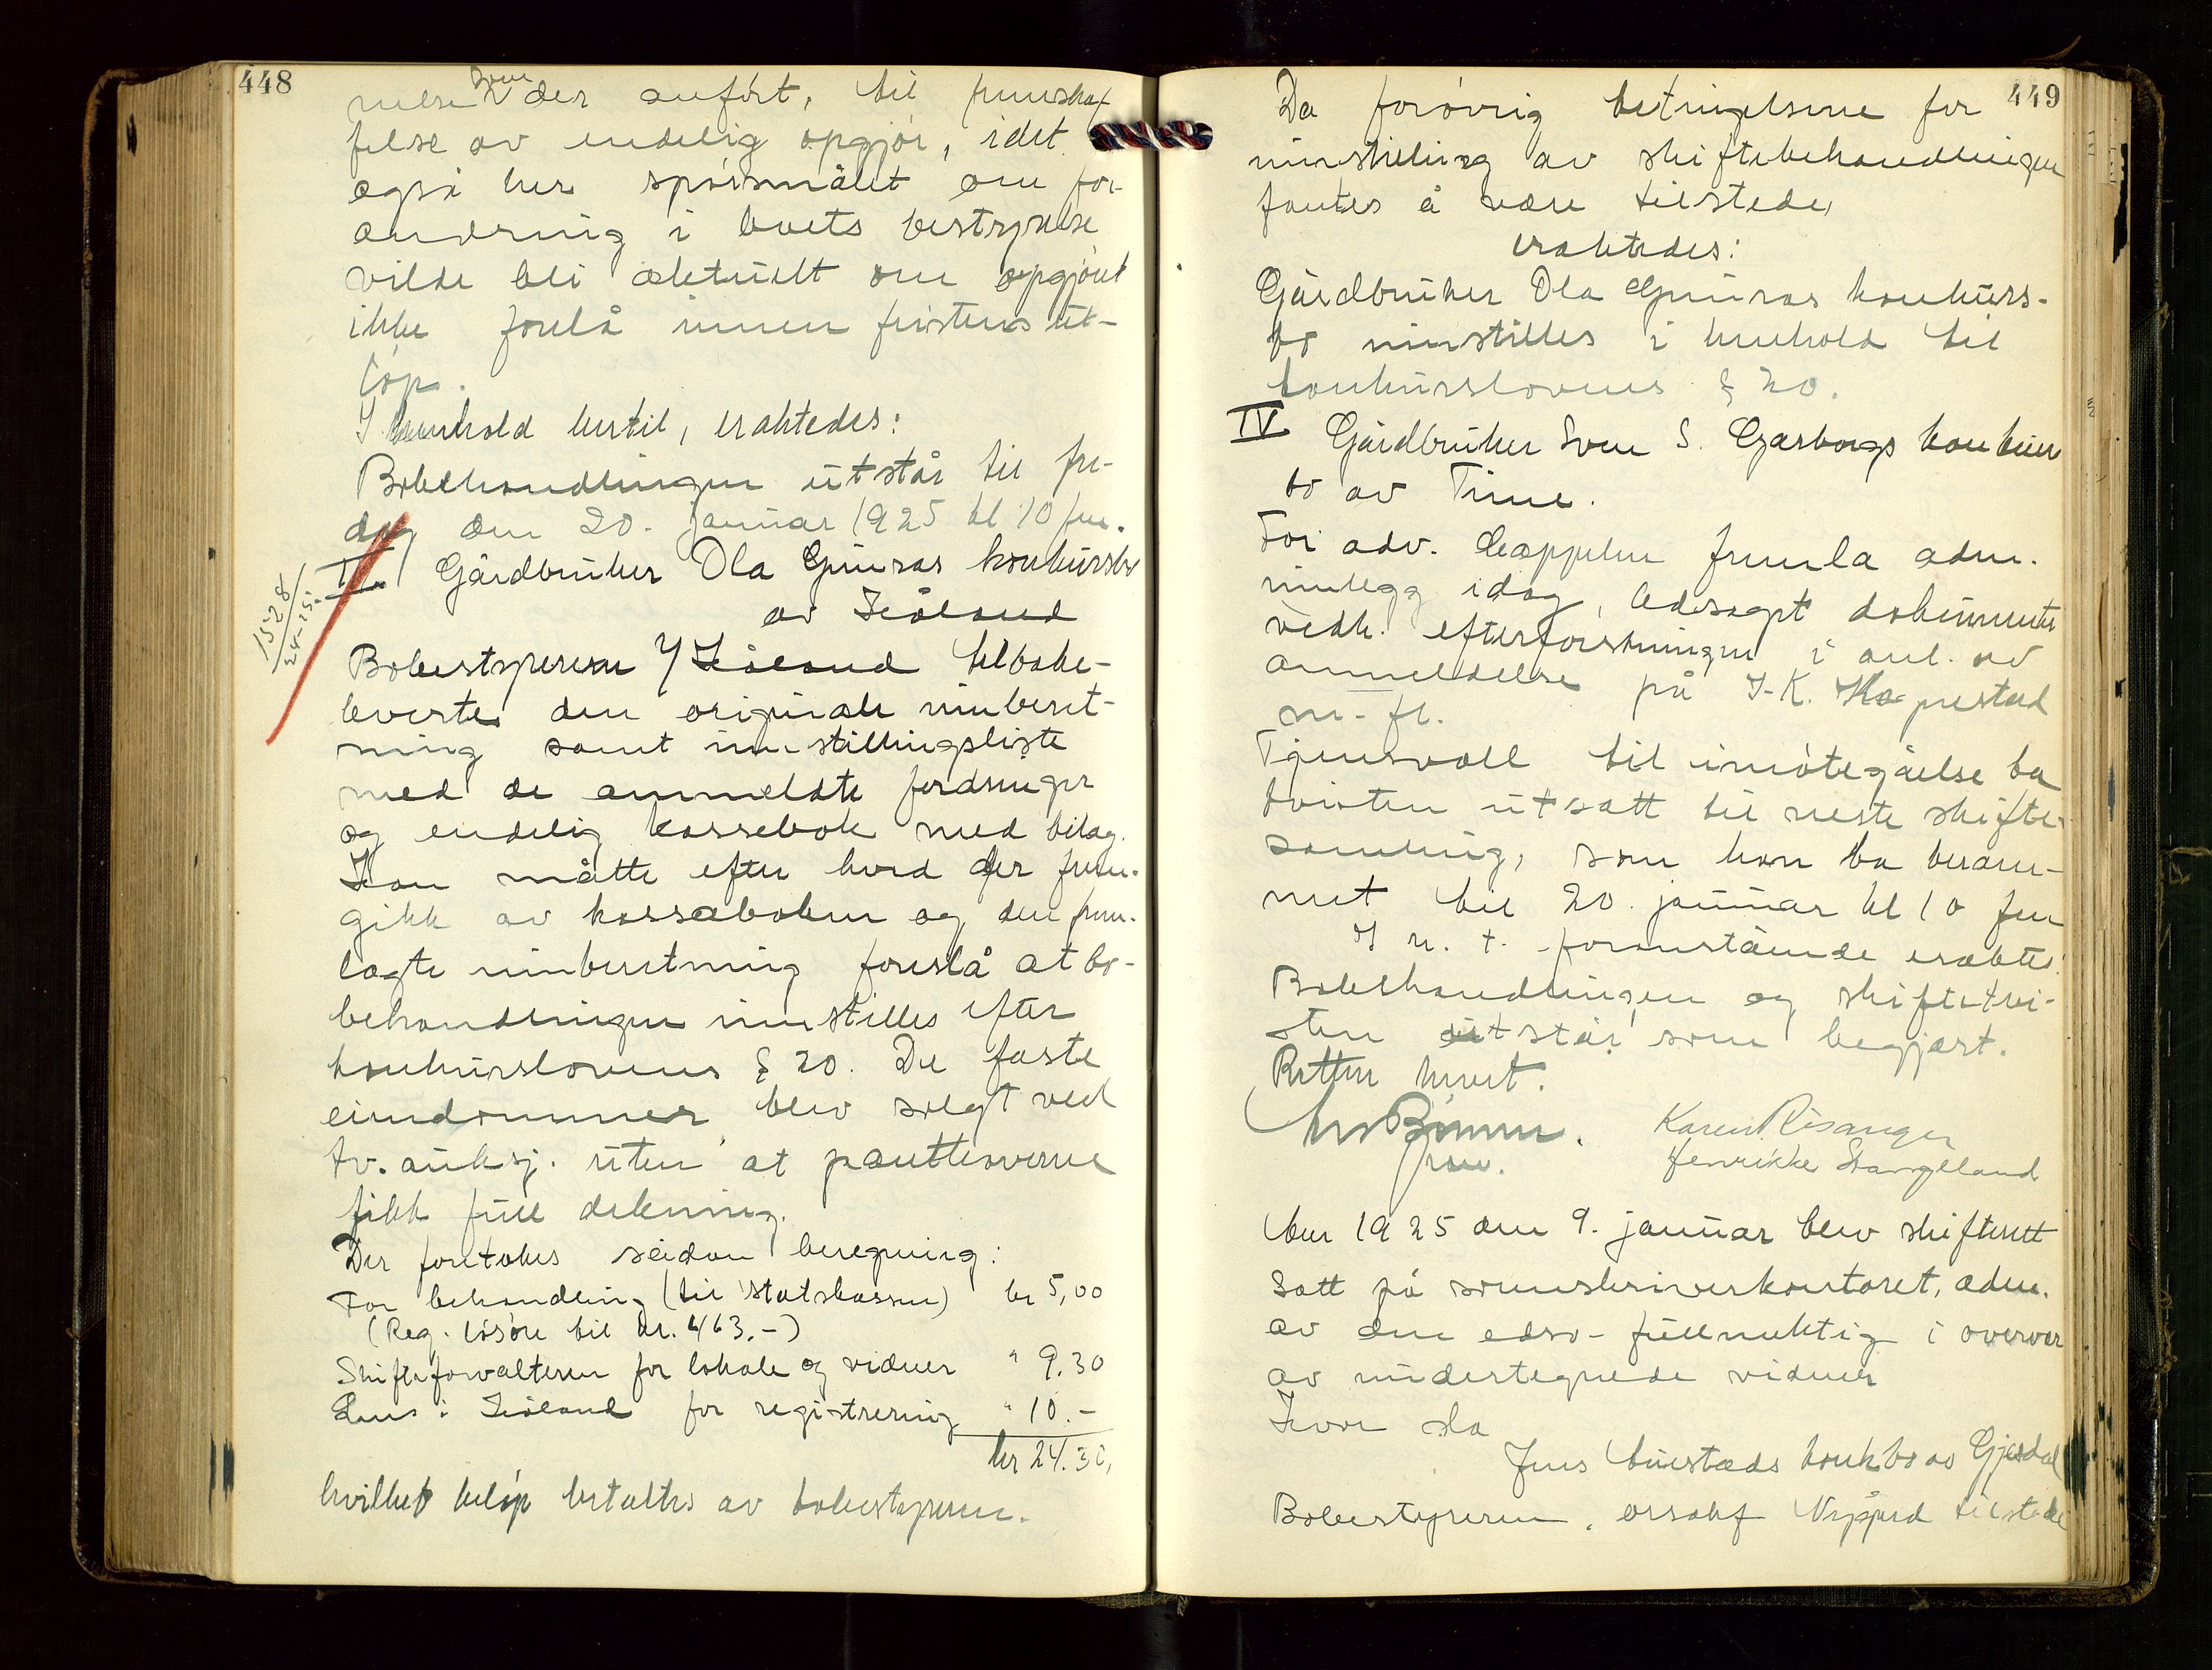 448
nelse som der anført, til fremskaf-
felse av endelig opgjør, idet
også her spørsmålet om for-
andring i boets bestyrelse
vilde bli aktuelt om opgjøret
ikke forelå innen fristens ut-
løp.
I henhold hertil, eraktedes:
Bobehandlingen utstår til fre-
dag den 20. januar 1925 kl 10 fm.
1528/24-25.
III. Gårdbruker Ola Grusas konkursbo
av Høland
Bobestyreren Høland tilbake-
leverte den originale innberet-
ning samt innstillingsliste
med de anmeldte fordringer
og endelig kassebok med bilag.
Han måtte efter hvad der frem-
gikk av kasseboken og den frem-
lagte innberetning foreslå at bo-
behandlingen innstilles efter
konkurslovens § 20. De faste
eiendommer blev solgt ved
tv. auksj. uten at panthaverne
fikk full dekning.
Der foretokes sådan beregning:
For behandling (til statskassen) kr 5,00
(Reg. løsøre til kr. 463.-)
Skifteforvalteren for lokale og vidner " 9.30
Lens. Høland for registrering " 10.-
kr 24.30,
hvilket beløp betaltes av bobestyreren.
449
Da forøvrig betingelsene for
innstilling av skiftebehandlingen
fantes å være tilstede,
eraktedes:
Gårdbruker Ola Grusas konkurs-
bo innstilles i henhold til
konkurslovens § 20.
IV Gårdbruker Sven S. Garborgs konkurs
bo av Time.
For adv. Cappelen fremla adm.
innlegg idag, ledsaget dokumenter
vedk. efterforskningen i anl. av
anmeldelse på J. K. Hapnestad
m. fl.
Tjensvoll til imøtegåelse ba
tvisten utsatt til neste skifte-
samling, som han ba beram-
met til 20. januar kl 10 fm
I h. t. foranstående eraktes:
Bobehandlingen og skiftetvi-
sten utstår som begjært.
Retten hevet.
Karen Risanger
fm. Henrikke Stangeland
År 1925 den 9. januar blev skifterett
satt på sorenskriverkontoret, adm.
av den edsv. fullmektig i overvær
av undertegnede vidner
Hvor da
Jens Buestads konkbo av Gjesdal
Bobestyreren, o.r.sakf Nygård tilstede